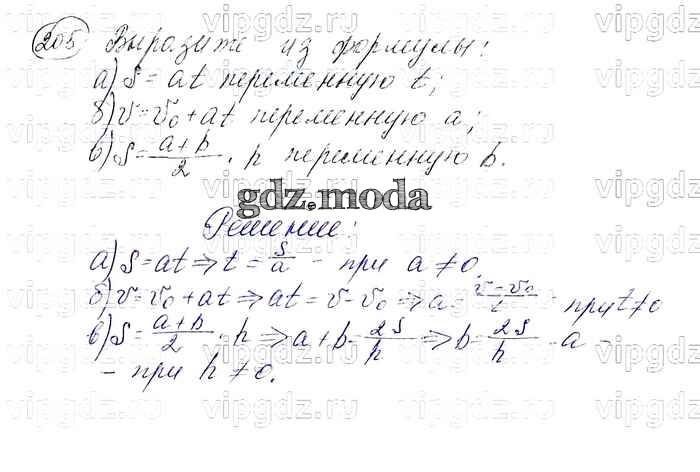 205 Выразите из формулы:
а) S = at переменную t;
б) v = v₀ + at переменную a;
в) S = (a+b)/2 · h переменную b.
gdz.moda
Решение:
а) S = at ⇒ t = S/a - при a ≠ 0.
б) v = v₀ + at ⇒ at = v - v₀ ⇒ a = (v - v₀)/t - при t ≠ 0
в) S = (a+b)/2 · h ⇒ a + b = 2S/h ⇒ b = 2S/h - a -
- при h ≠ 0.
vipgdz